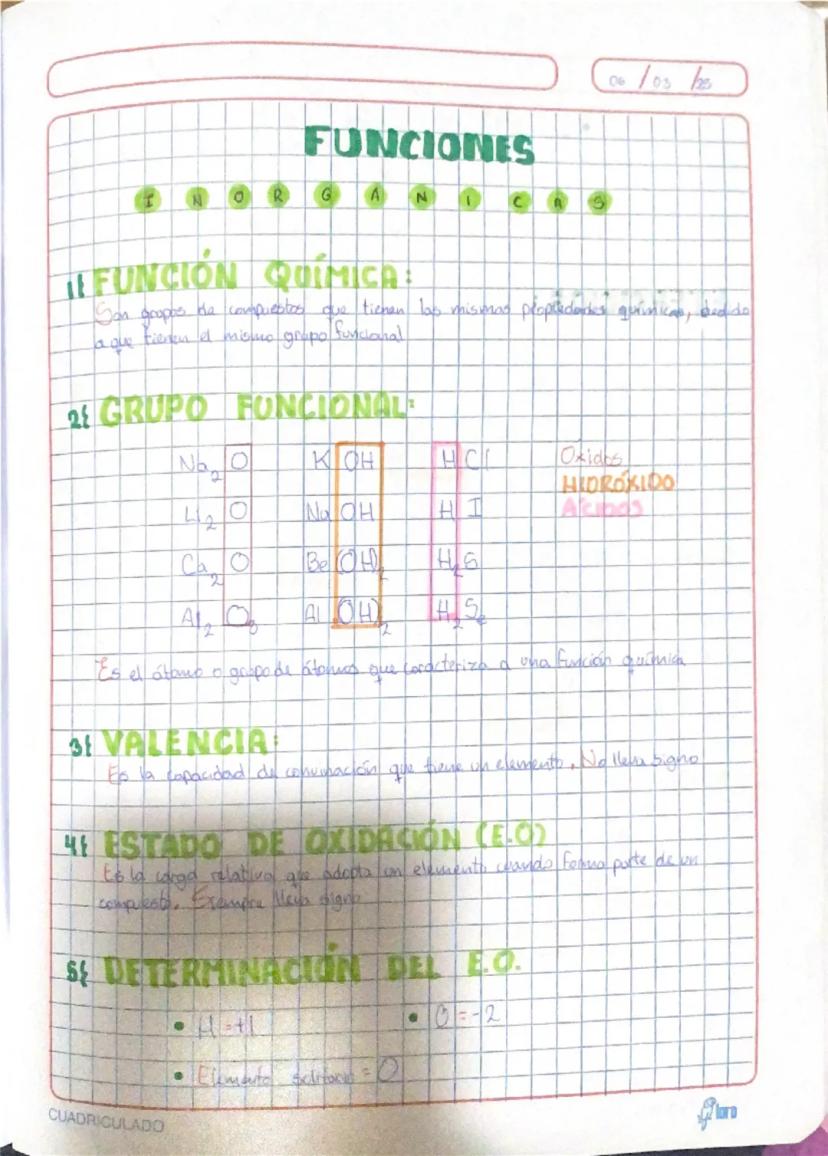 06 / 03 / 25
FUNCIONES
INORGANICAS
1{ FUNCIÓN QUÍMICA:
Son grupos de compuestos que tienen las mismas propiedades químicas, debido
a que tienen el mismo grupo funcional
2{ GRUPO FUNCIONAL:
Na2 O K OH H Cl Oxidos
HIDRÓXIDO
Li2 O Na OH H I Ácidos
Ca2 O Be (OH)2 H2 S
Al2 O3 Al (OH)2 H2 Se
Es el átomo o grupo de átomos que caracteriza a una función química
3{ VALENCIA:
Es la capacidad de convinación que tiene un elemento. No lleva signo
4{ ESTADO DE OXIDACIÓN (E.O)
Es la carga relativa que adopta un elemento cuando forma parte de un
compuesto. Exempre lleva signo
5{ DETERMINACIÓN DEL E.O.
• H = +1 • O = -2
• Elemento solitario = O
CUADRICULADO